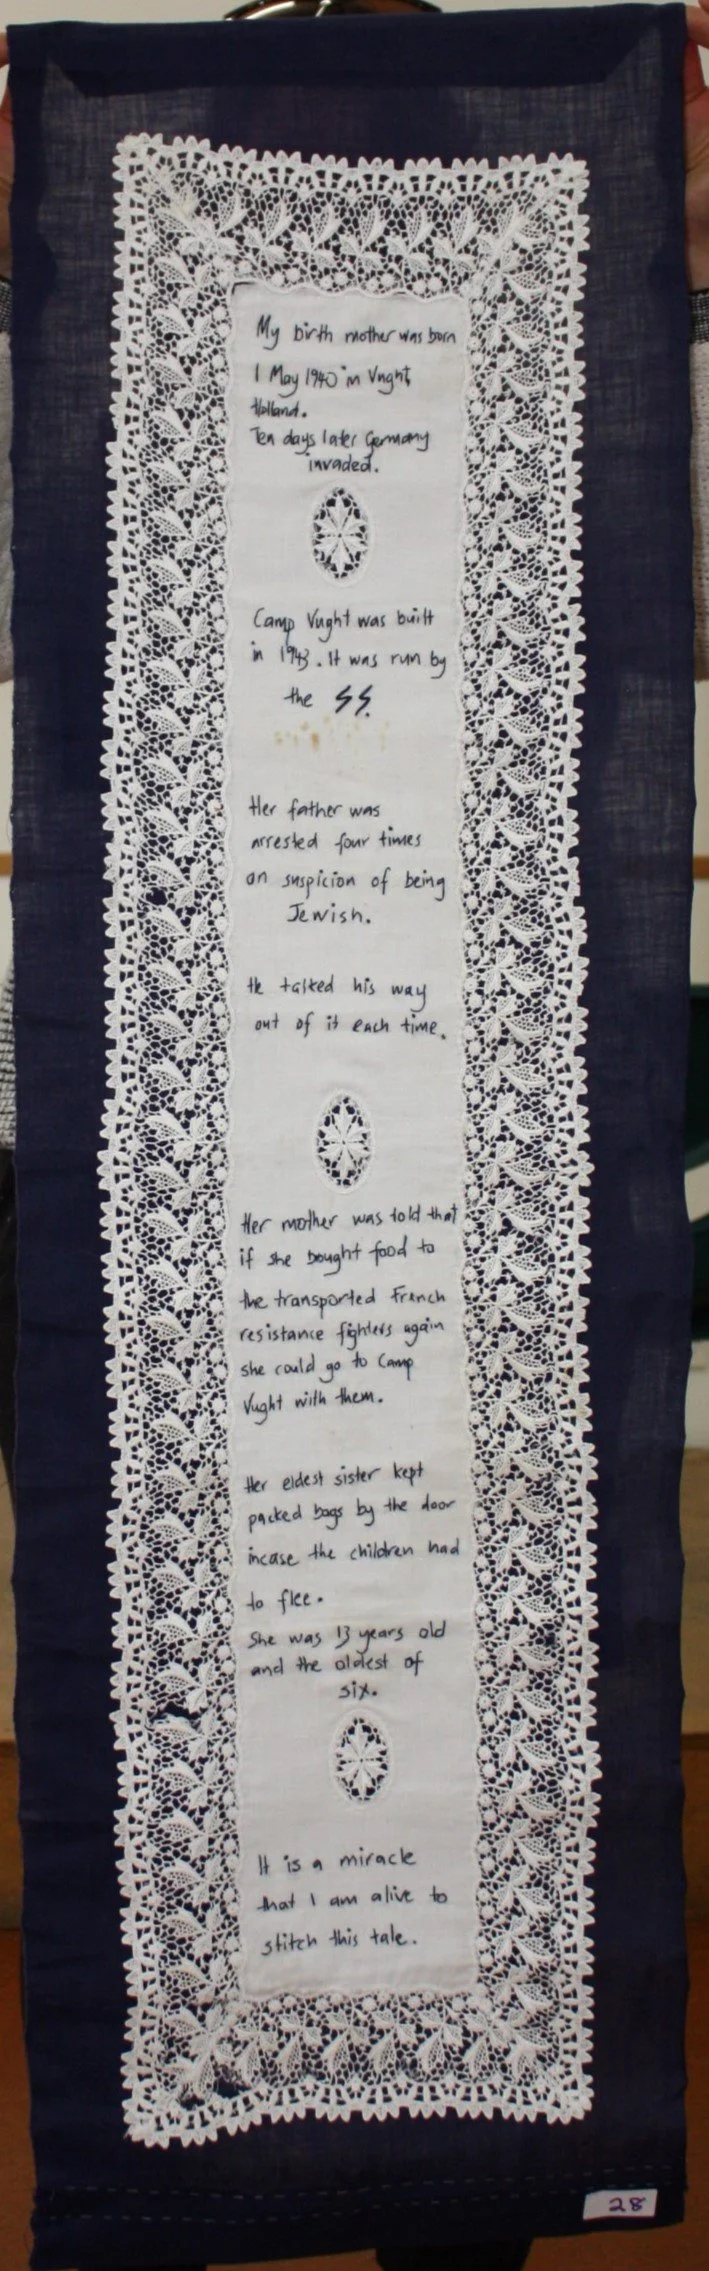 My birth mother was born
1 May 1940 in Vught,
Holland.
Ten days later Germany
invaded.
Camp Vught was built
in 1943. It was run by
the SS.
Her father was
arrested four times
on suspicion of being
Jewish.
He talked his way
out of it each time.
Her mother was told that
if she bought food to
the transported French
resistance fighters again
she could go to Camp
Vught with them.
Her eldest sister kept
packed bags by the door
incase the children had
to flee.
She was 13 years old
and the oldest of
six.
It is a miracle
that I am alive to
stitch this tale.
28